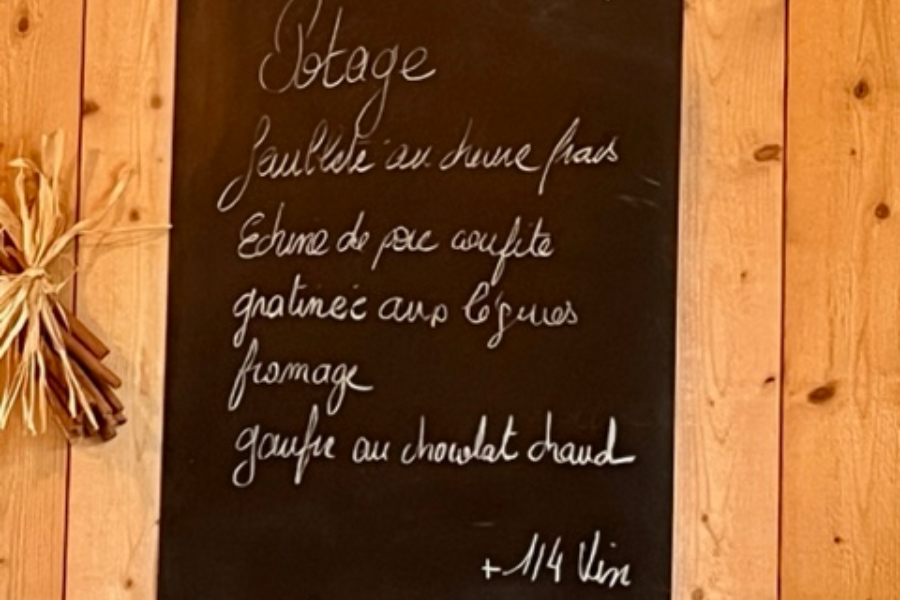 Potage
feuilleté au chèvre frais
Echine de porc confite
gratinée aux légumes
fromage
gaufre au chocolat chaud
+ 1/4 Vin